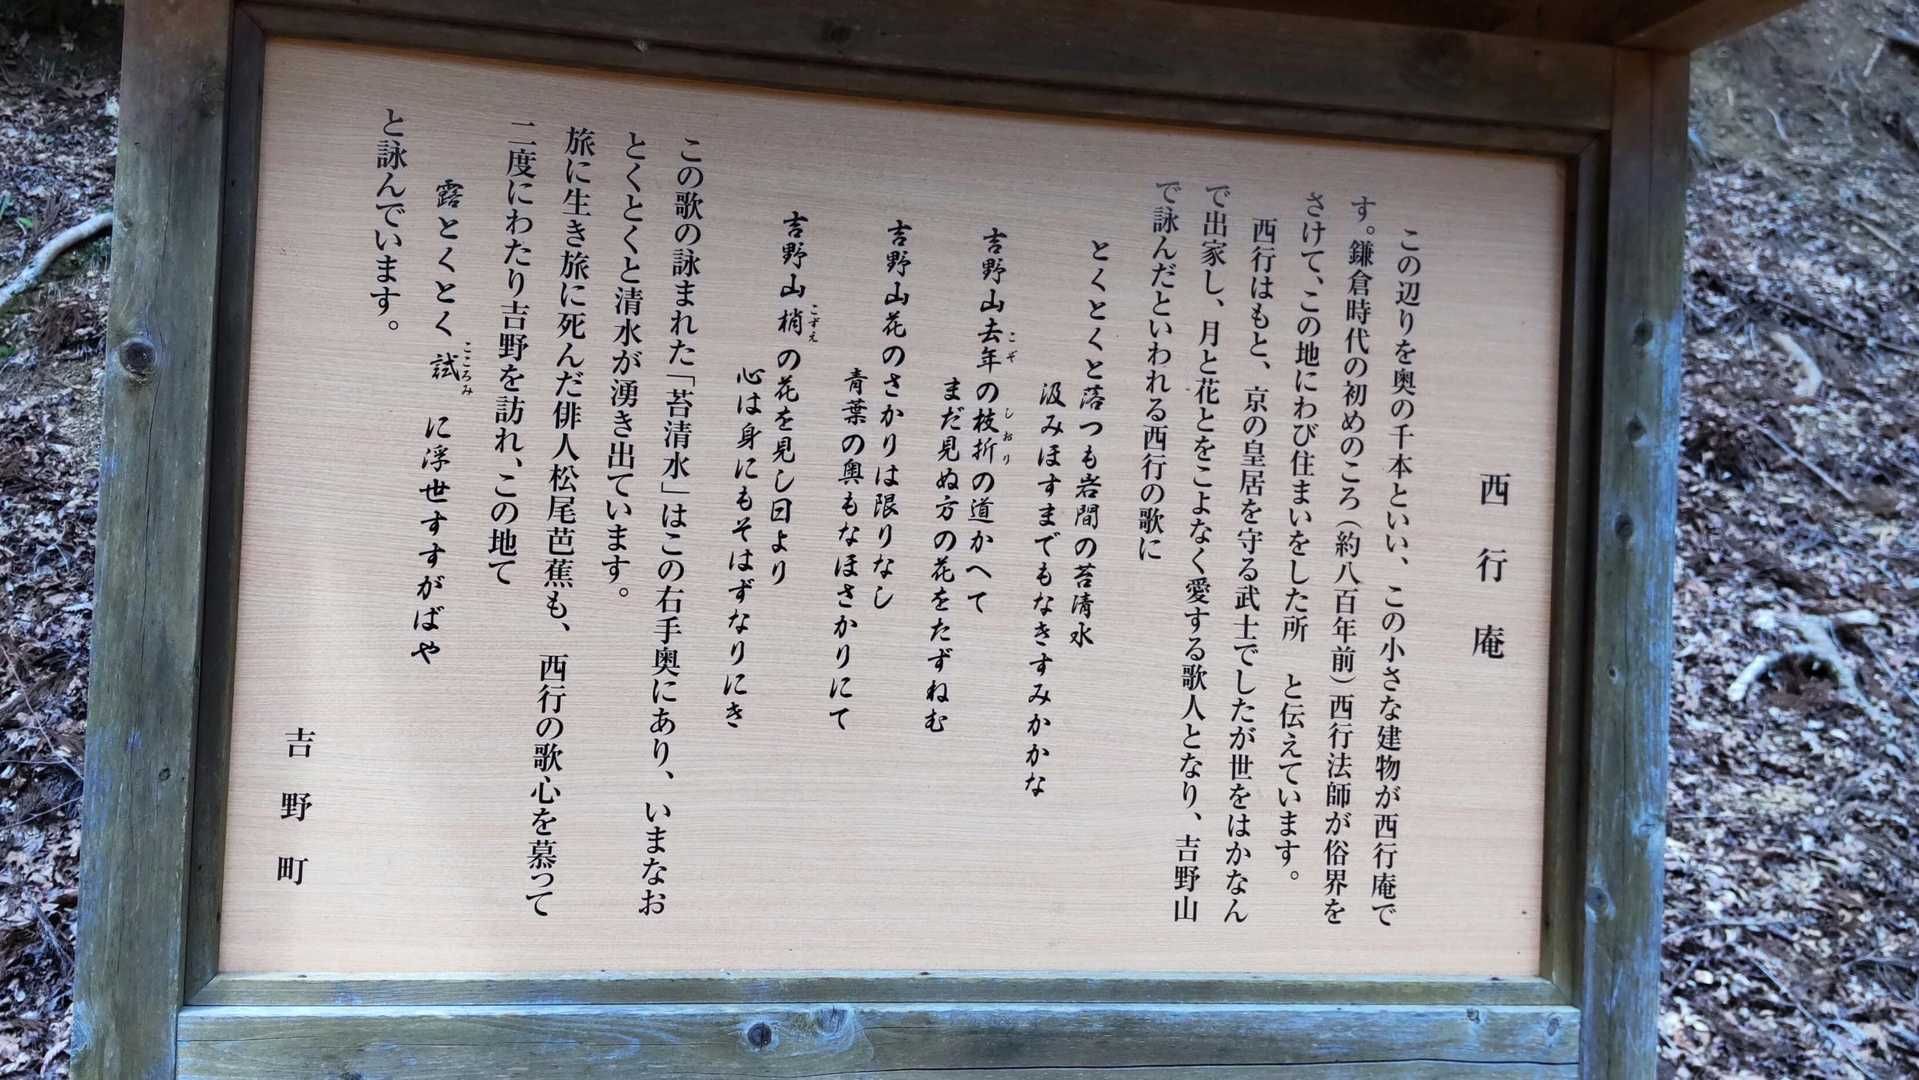 西行庵
この辺りを奥の千本といい、この小さな建物が西行庵で
す。鎌倉時代の初めのころ（約八百年前）西行法師が俗界を
さけて、この地にわび住まいをした所　と伝えています。
西行はもと、京の皇居を守る武士でしたが世をはかなん
で出家し、月と花とをこよなく愛する歌人となり、吉野山
で詠んだといわれる西行の歌に
とくとくと落つも岩間の苔清水
汲みほすまでもなきすみかかな
吉野山去年の枝折の道かへて
こぞ
しおり
まだ見ぬ方の花をたずねむ
吉野山花のさかりは限りなし
青葉の奥もなほさかりにて
吉野山梢の花を見し日より
こずえ
心は身にもそはずなりにき
この歌の詠まれた「苔清水」はこの右手奥にあり、いまなお
とくとくと清水が湧き出ています。
旅に生き旅に死んだ俳人松尾芭蕉も、西行の歌心を慕って
二度にわたり吉野を訪れ、この地て
露とくとく試に浮世すすがばや
こころみ
と詠んでいます。
吉野町